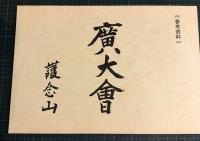 （参考資料）
廣大會
護念山